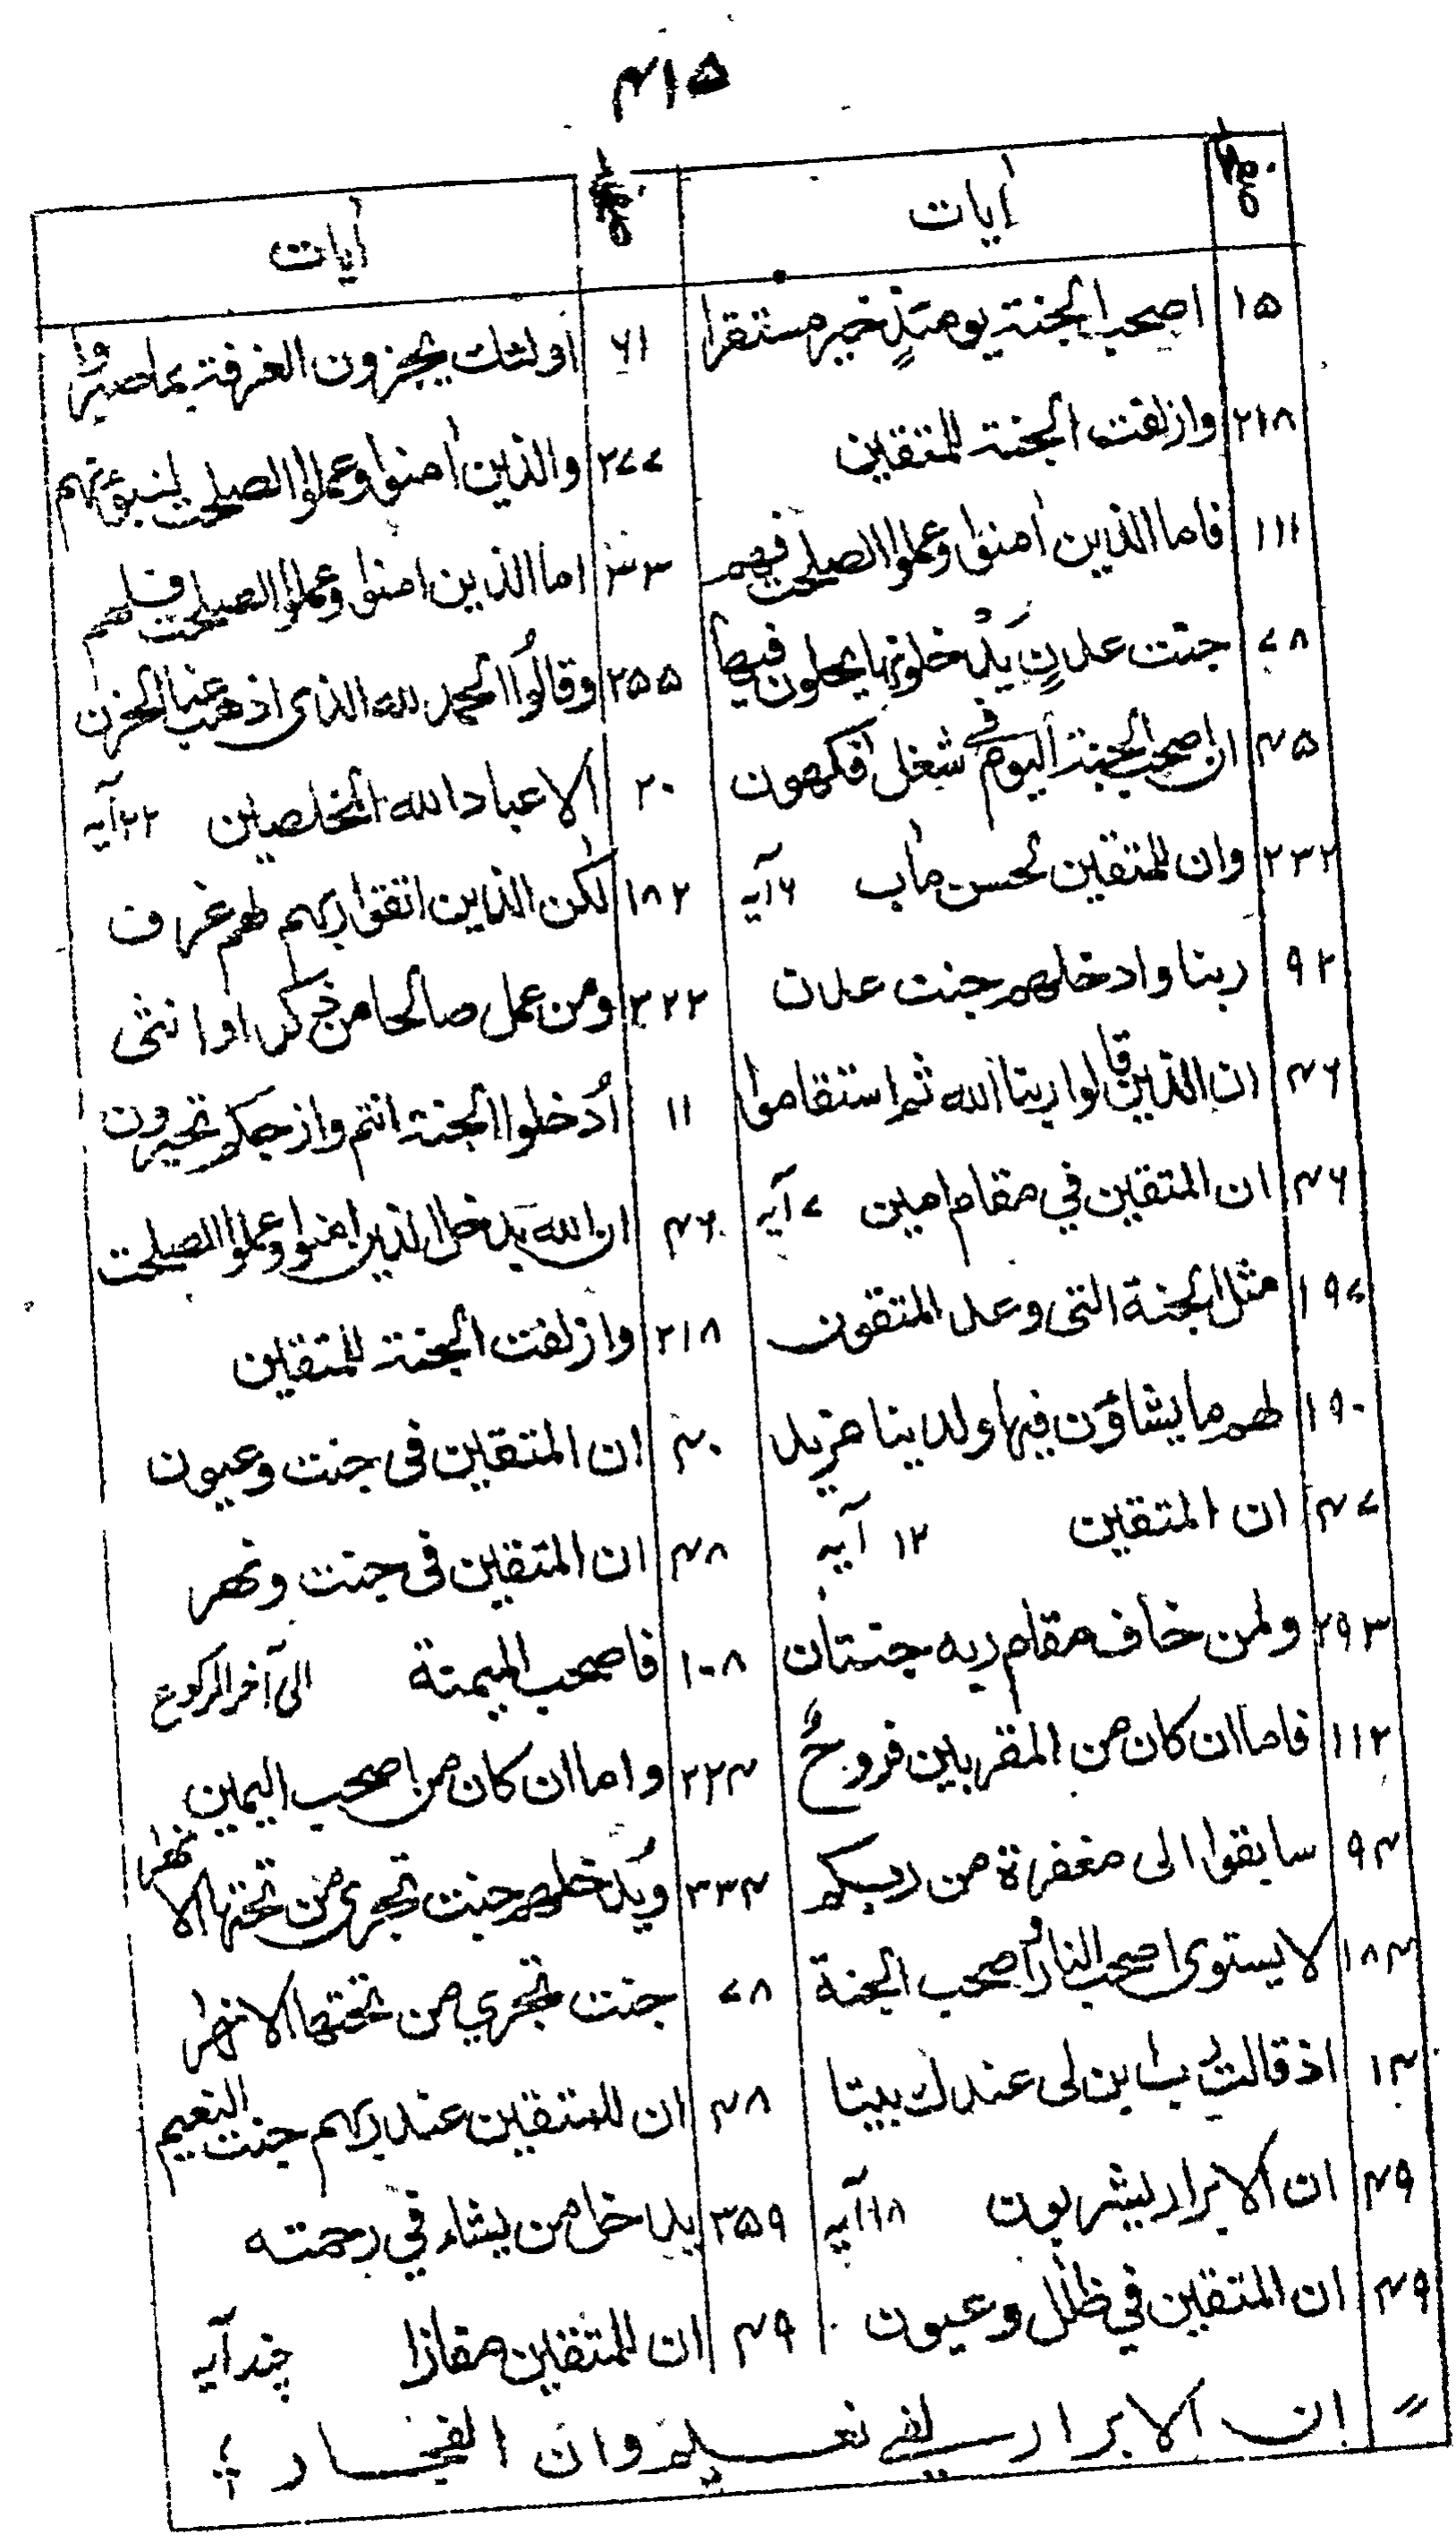 ۴۱۵
صفحہ آیات صفحہ آیات
۱۵ اصحب الجنة يومئذٍ خير مستقرا ۶۱ اولئك يجزون الغرفة بما صبروا
۲۱۸ وازلفت الجنة للمتقين ۲۷۷ والذين اٰمنوا وعملوا الصلحت لنبوئنهم
۱۱۱ فاما الذين اٰمنوا وعملوا الصلحت فهم ۳۳ اما الذين اٰمنوا وعملوا الصلحت فلهم
۷۸ جنت عدنٍ يَدْخلونها يحلون فيها ۲۵۵ وقالُوا الحمد لله الذى اذهب عنا الحزن
۴۵ ان اصحب الجنة اليوم فى شغل فٰكهون ۲۰ الا عباد الله المخلصين ۲۲ آیہ
۲۳۲ وان للمتقين لحسن ماٰب ۶ آیہ ۱۸۲ لٰكن الذين اتقوا ربهم لهم غرف
۹۲ ربنا وادخلهم جنت عدن ۳۲۲ ومن عمل صالحا من ذكر او انثى
۴۶ ان الذين قالوا ربنا الله ثم استقاموا ۱۱ اُدخلوا الجنة انتم وازجكم تحبرون
۴۶ ان المتقين في مقام امين ۷ آیہ ۴۶ ان الله يدخل الذين اٰمنوا وعملوا الصلحت
۱۹۷ مثل الجنة التى وعد المتقون ۲۱۸ وازلفت الجنة للمتقين
۱۹۰ لهم ما يشاؤن فيها ولدينا مزيد ۴۰ ان المتقين فى جنت وعيون
۴۷ ان المتقين ۱۲ آیہ ۴۸ ان المتقين فى جنت ونهر
۲۹۳ ولمن خاف مقام ربه جنتان ۱۰۸ فاصحب الميمنة الی آخر الرکوع
۱۱۲ فاما ان كان من المقربين فروحٌ ۲۲۴ واما ان كان من اصحب اليمين
۹۴ سابقوا الى مغفرة من ربكم ۳۳۴ ويُدخلهم جنت تجرى من تحتها الانهٰر
۱۸۴ لا يستوى اصحب النار واصحب الجنة ۷۸ جنت تجري من تحتها الانهٰر
۱۴ اذ قالت رب ابن لى عندك بيتا ۴۸ ان للمتقين عند ربهم جنت النعيم
۴۹ ان الابرار يشربون ۱۸ آیہ ۳۵۹ يدخل من يشاء في رحمته
۴۹ ان المتقين في ظلٰل وعيون ۴۹ ان للمتقين مفازا چند آیہ
〃 ان الابرار لفے نعیم وان الفجار